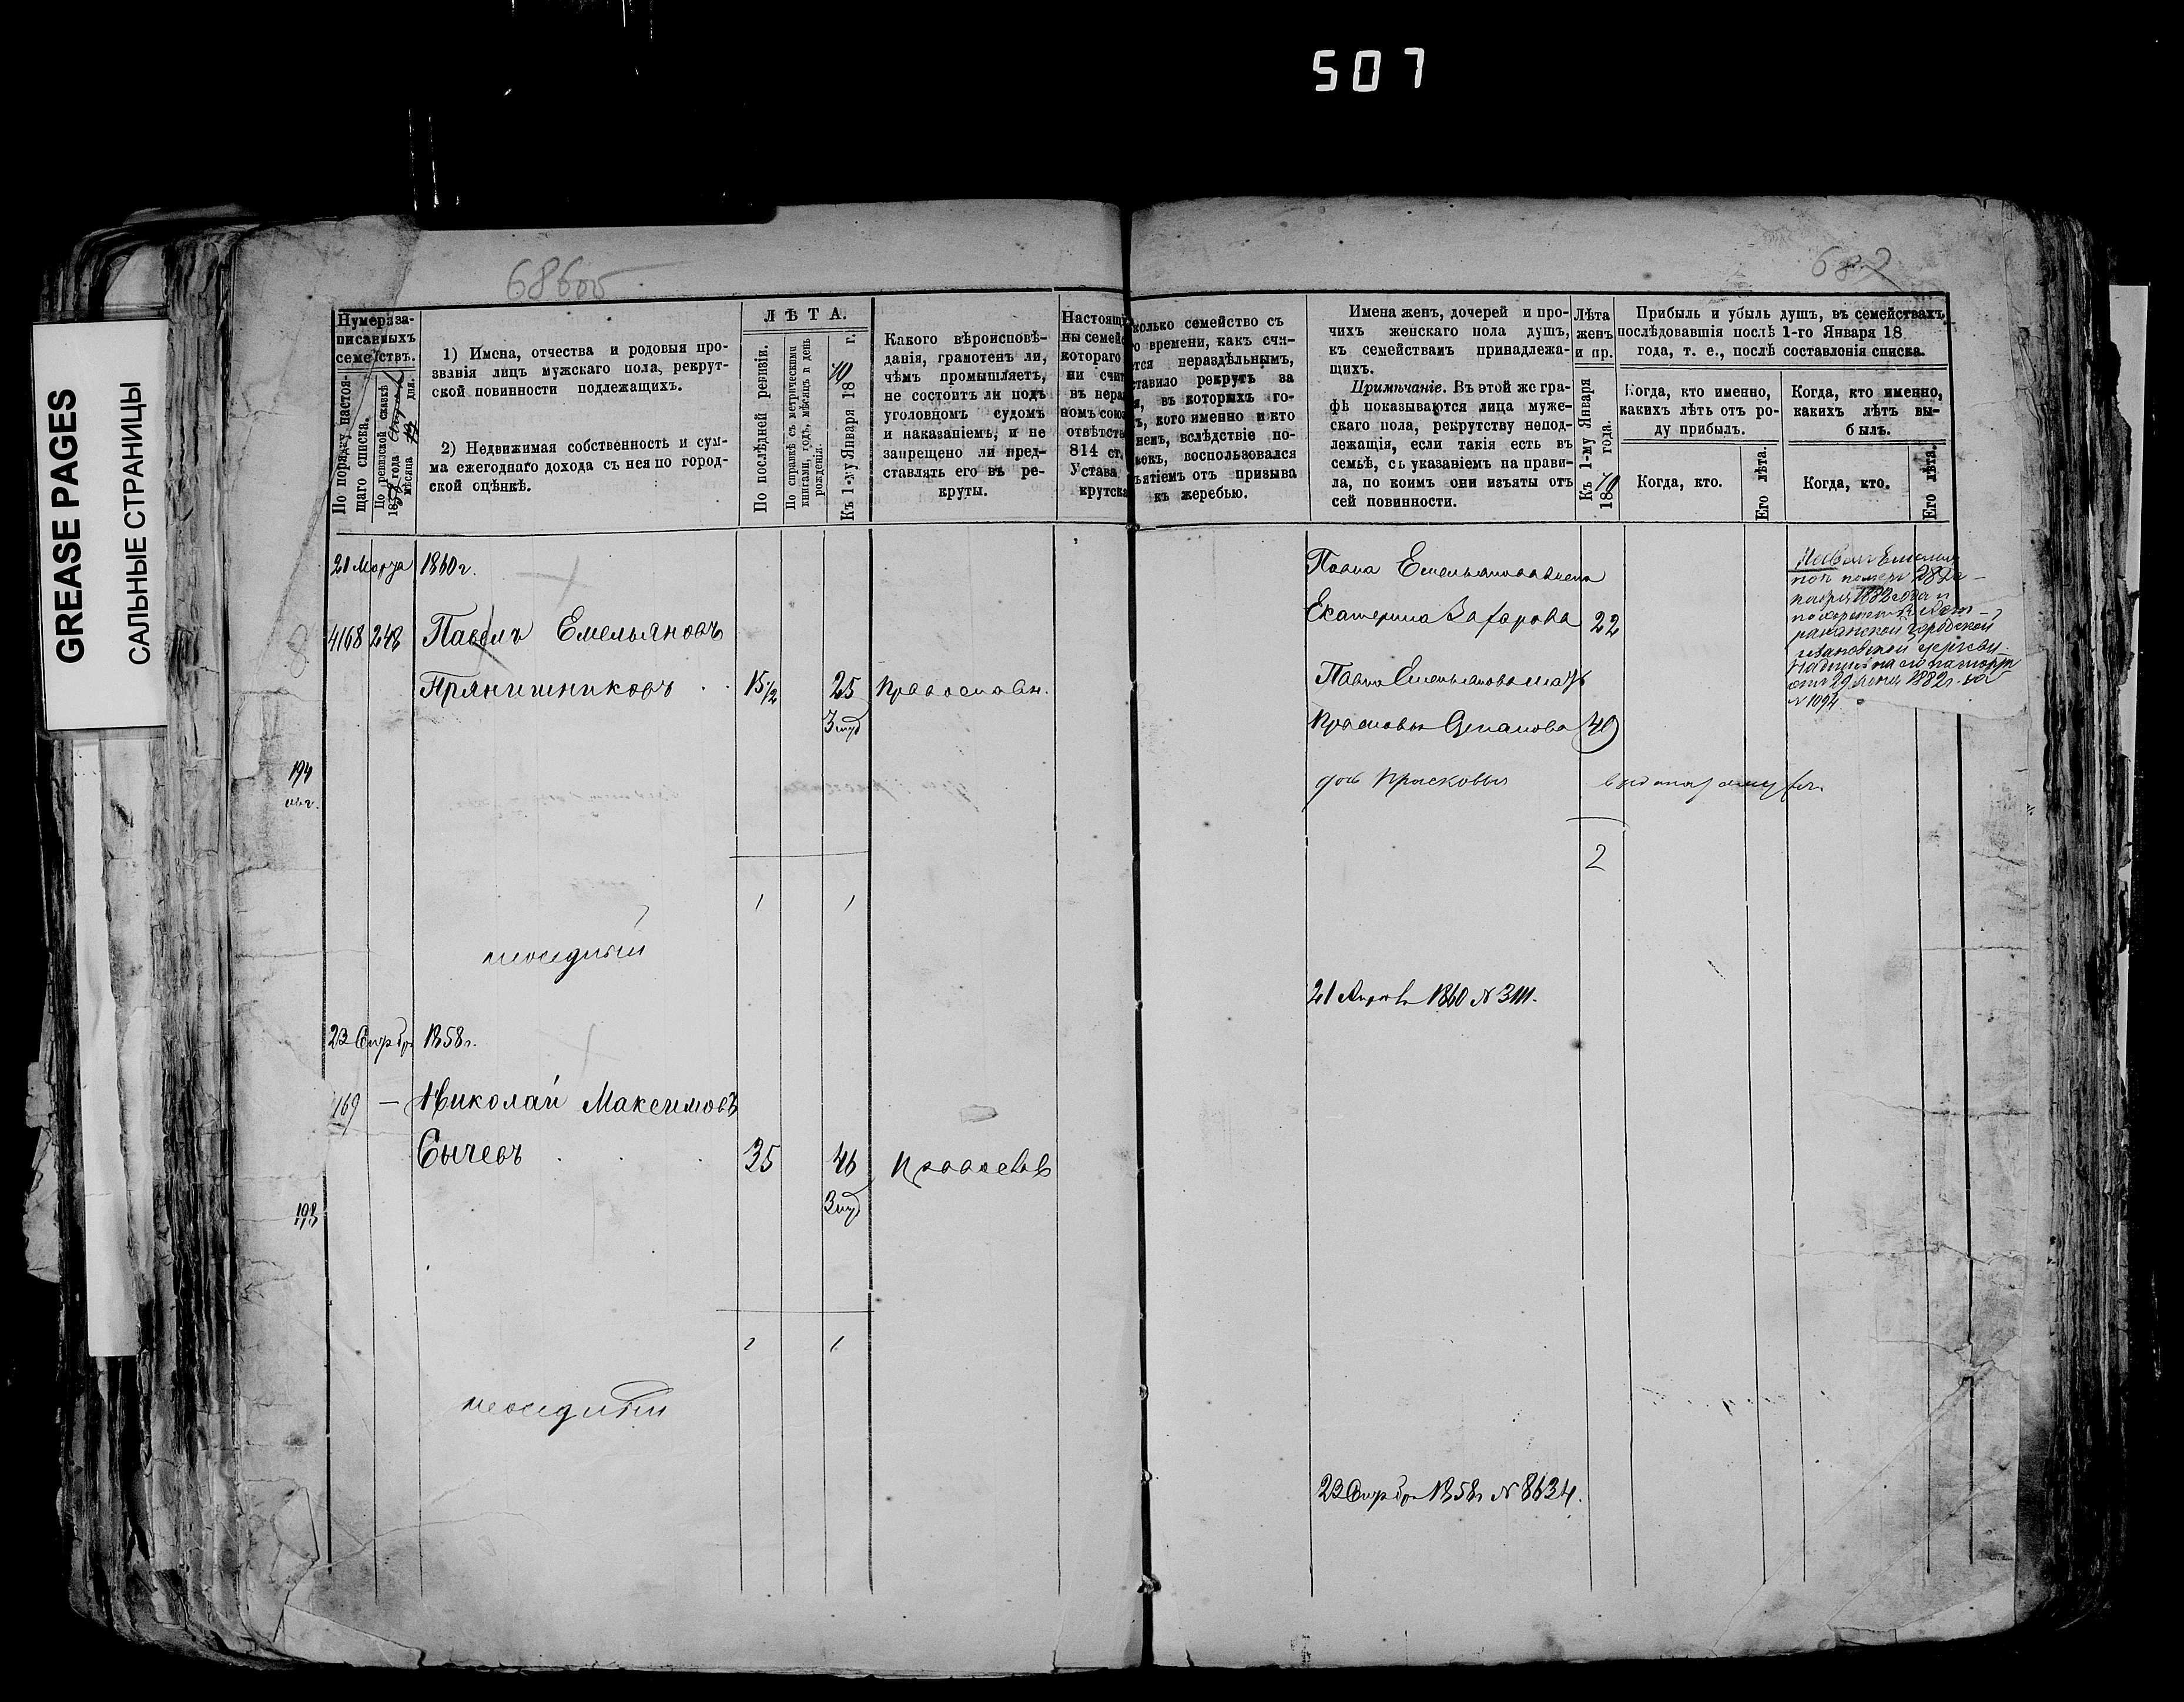 507
GREASE PAGES
САЛЬНЫЕ СТРАНИЦЫ
686об
687
Нумера за-
писанныхъ
семействъ.
По порядку настоя-
щаго списка.
По ревизской сказкѣ
1858 года
мѣсяца дня.
1) Имена, отчества и родовыя про-
званія лицъ мужскаго пола, рекрут-
ской повинности подлежащихъ.
2) Недвижимая собственность и сум-
ма ежегоднаго дохода съ нея по город-
ской оцѣнкѣ.
ЛѢТА.
По послѣдней ревизіи.
По справкѣ съ метрическими
книгами, годъ, мѣсяцъ и день
рожденія.
Къ 1-му Января 1870 г.
Какого вѣроисповѣ-
данія, грамотенъ ли,
чѣмъ промышляетъ,
не состоитъ ли подъ
уголовномъ судомъ
и наказаніемъ, и не
запрещено ли пред-
ставлять его въ ре-
круты.
Настоящ
ны семей
котораго
ни счит
въ нера
номъ союз
отвѣтств
814 ст.
Устава
крутска
колько семейство съ
о времени, какъ счи-
тся нераздѣльнымъ,
ставило рекрутъ за
я, въ которыхъ го-
ъ, кого именно и кто
немъ, вслѣдствіе по-
вокъ, воспользовался
ъятіемъ отъ призыва
къ жеребью.
Имена женъ, дочерей и про-
чихъ женскаго пола душъ,
къ семействамъ принадлежа-
щихъ.
Примѣчаніе. Въ этой же гра-
фѣ показываются лица муже-
скаго пола, рекрутству непод-
лежащія, если такія есть въ
семьѣ, съ указаніемъ на прави-
ла, по коимъ они изъяты отъ
сей повинности.
Лѣта
женъ
и пр.
Къ 1-му Января
1870 года.
Прибыль и убыль душъ, въ семействахъ,
послѣдовавшія послѣ 1-го Января 18
года, т. е., послѣ составленія списка.
Когда, кто именно,
какихъ лѣтъ отъ ро-
ду прибылъ.
Когда, кто.
Его лѣта.
Когда, кто именно,
какихъ лѣтъ вы-
былъ.
Когда, кто.
Его лѣта.
21 Марта 1860 г.
4168 248 Павелъ Емельяновъ
Прянишниковъ 15½ 25 Православн.
194
1 1
неоседлый
Павла Емельянова жена
Екатерина Захарова 22
Павла Емельянова мать
Прасковья Степанова 40
дочь Прасковья выдана замуж.
2
Павелъ Емельян
1882 года и
городской
церкви
1882 г. за
№ 1094
21 1860 № 3111.
23 1858 г.
169 — Николай Максимовъ
Сычевъ 35 46 Православ
193
1 1
неоседлый
23 1858 г № 8634.